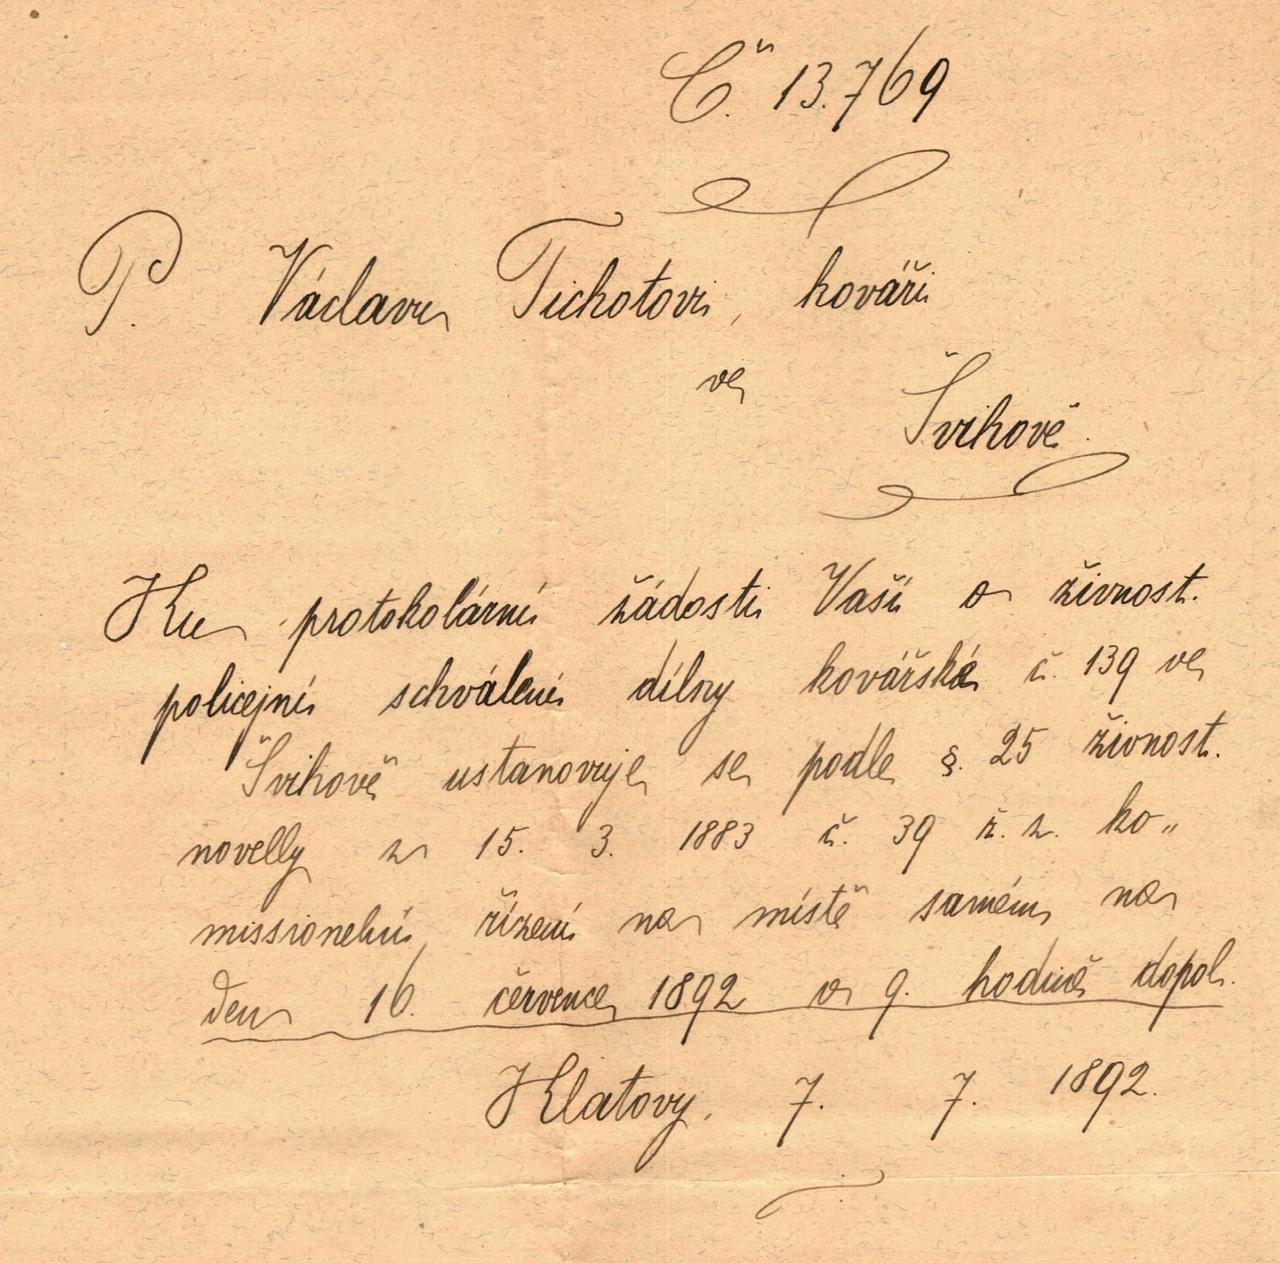 Č. 13.769
P. Václavu Tichotovi, kováři
ve
Švihově.
Ku protokolární žádosti Vaší o živnost.
policejní schválení dílny kovářské č. 139 ve
Švihově ustanovuje se podle §. 25 živnost.
novelly z 15. 3. 1883 č. 39 ř. z. ko„
missionelní řízení na místě samém na
den 16. července 1892 o 9. hodině dopol.
Klatovy, 7. 7. 1892.